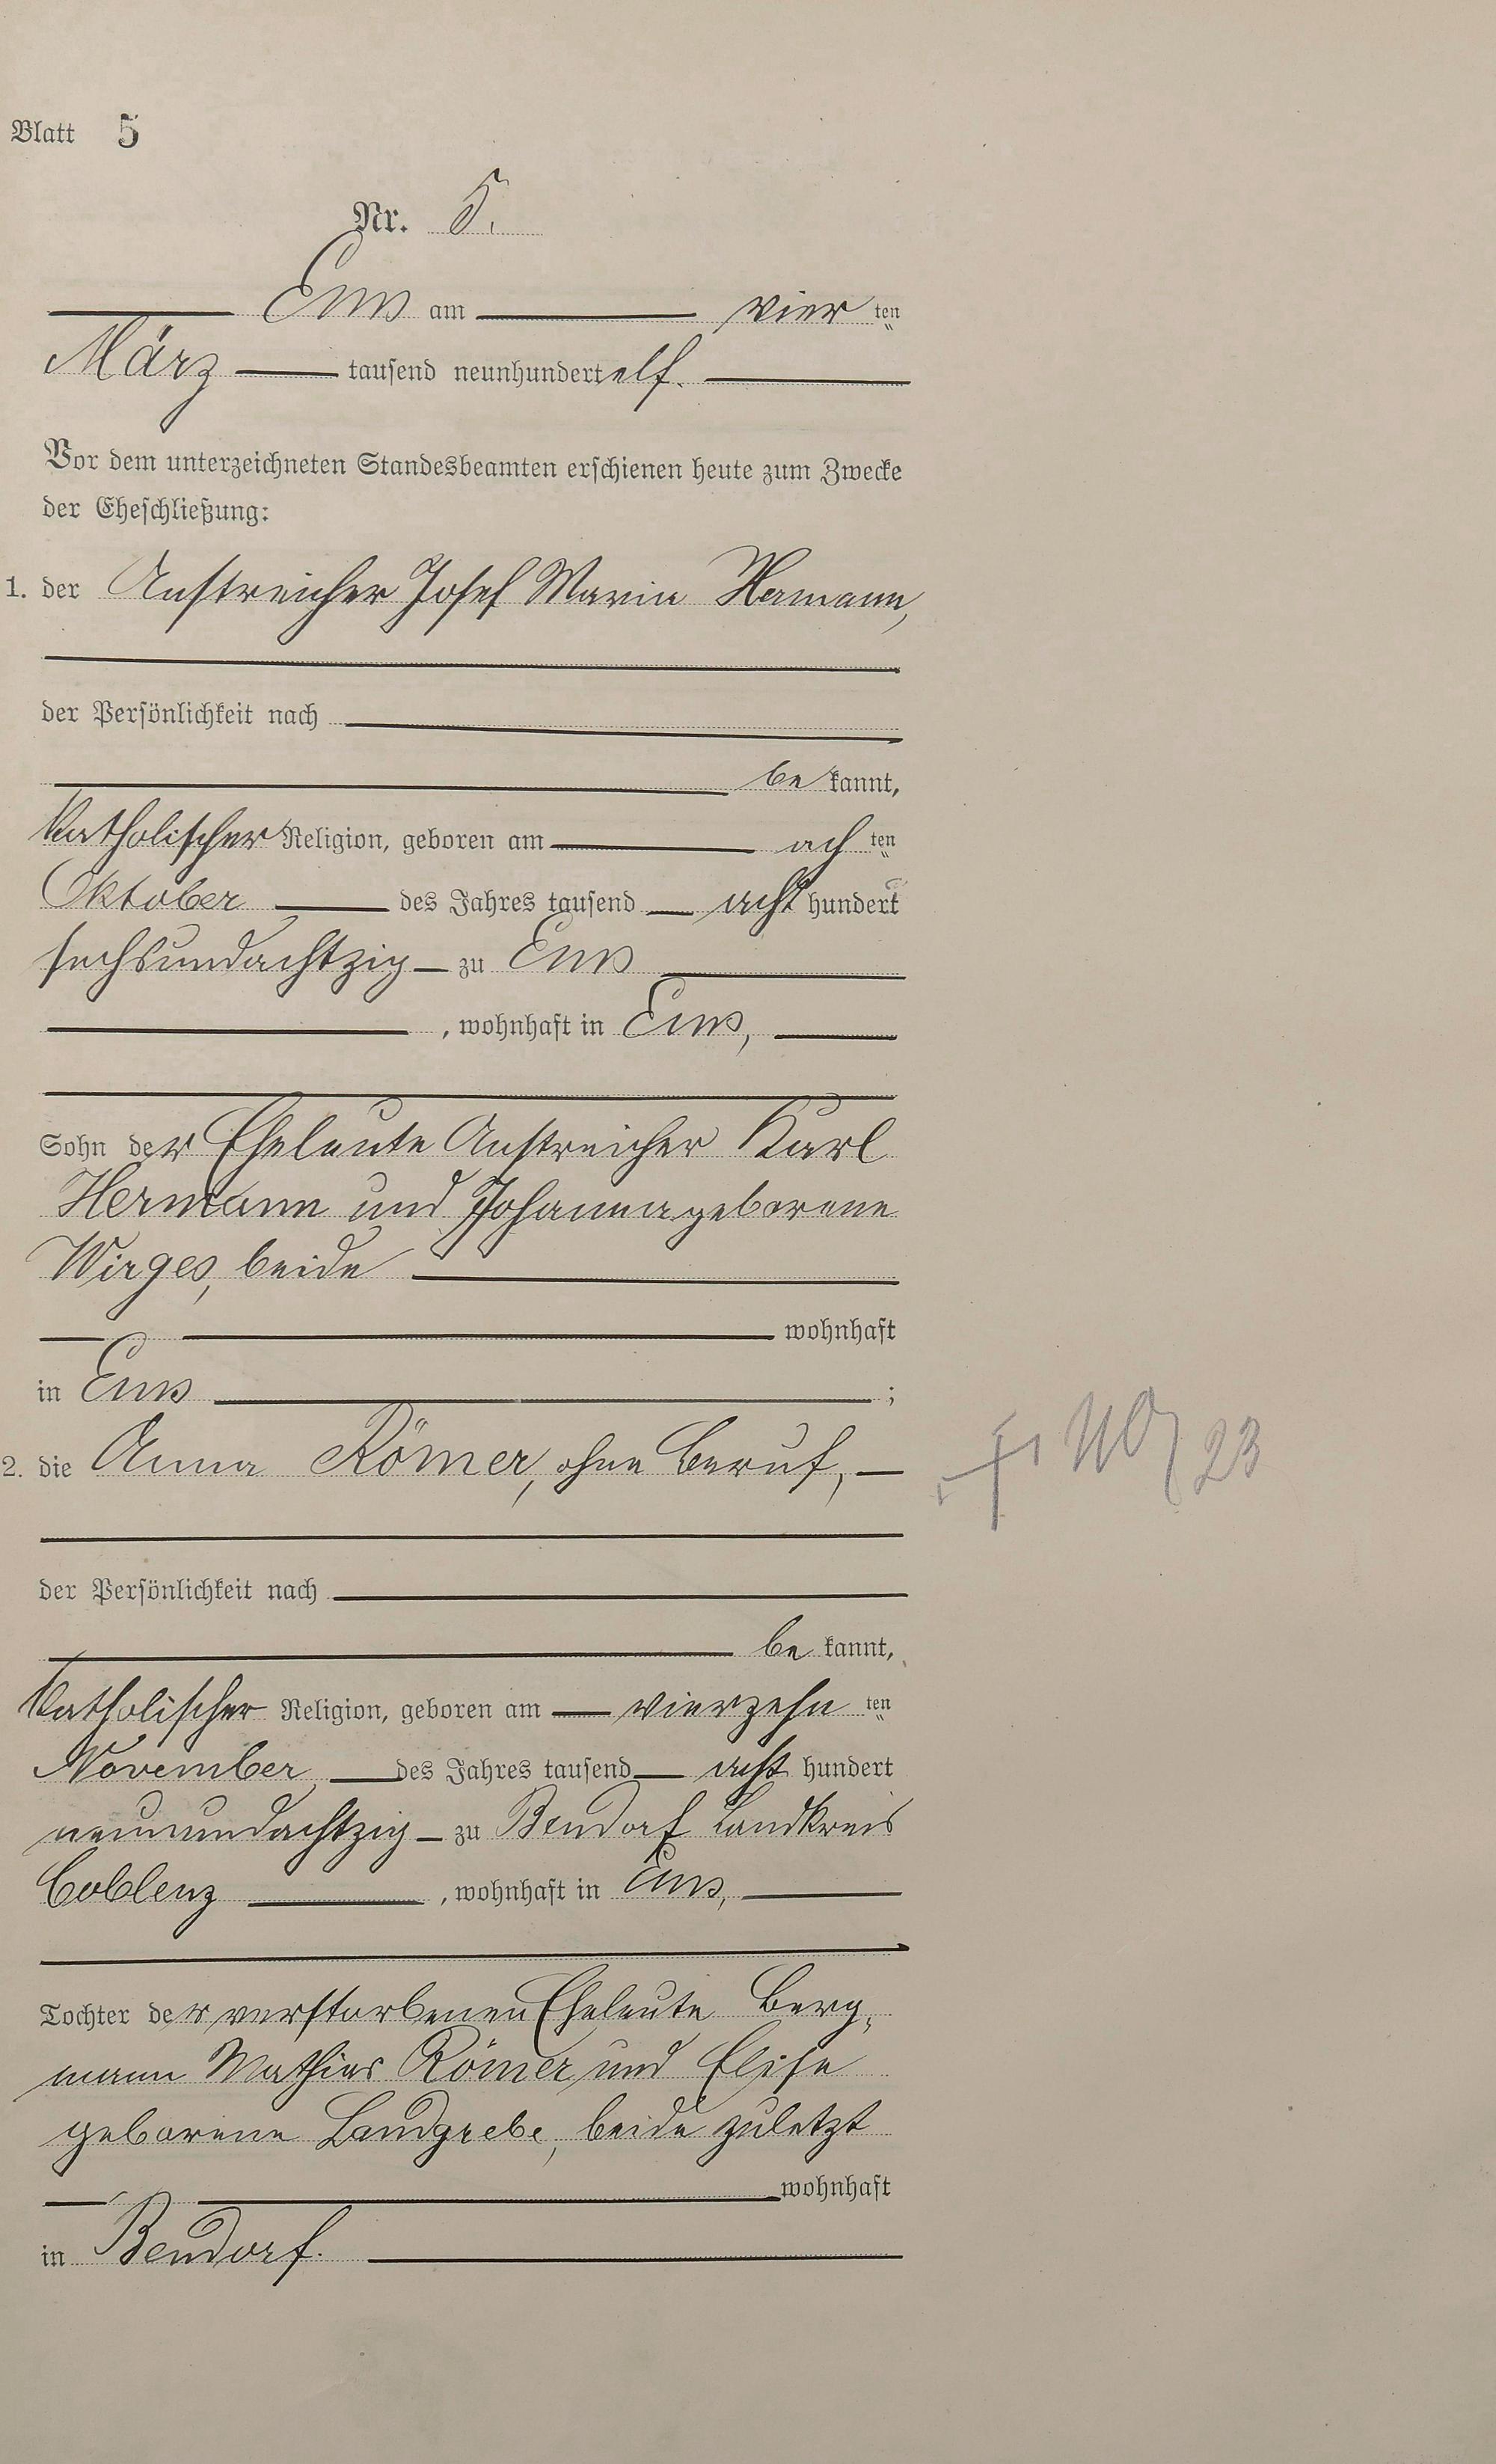 Blatt 5
Nr. 5.
Ems am vier ten
März tausend neunhundert elf.
Vor dem unterzeichneten Standesbeamten erschienen heute zum Zwecke
der Eheschließung:
1. der Anstreicher Josef Maria Hermann,
der Persönlichkeit nach
be kannt,
katholischer Religion, geboren am ach ten
Oktober des Jahres tausend acht hundert
sechsundachtzig zu Ems
, wohnhaft in Ems,
Sohn der Eheleute Anstreicher Karl
Hermann und Johanna geborene
Wirges, beide
wohnhaft
in Ems ;
2. die Anna Römer, ohne Beruf,
der Persönlichkeit nach
be kannt,
katholischer Religion, geboren am vierzehn ten
November des Jahres tausend acht hundert
neunundachtzig zu Bendorf Landkreis
Coblenz , wohnhaft in Ems,
Tochter der verstorbenen Eheleute Berg-
mann Mathias Römer und Elise
geborene Landgrebe, beide zuletzt
wohnhaft
in Bendorf.
23